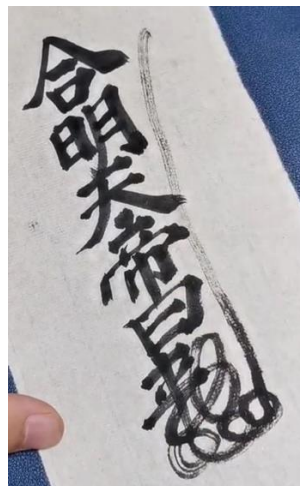 合明天帝日敕